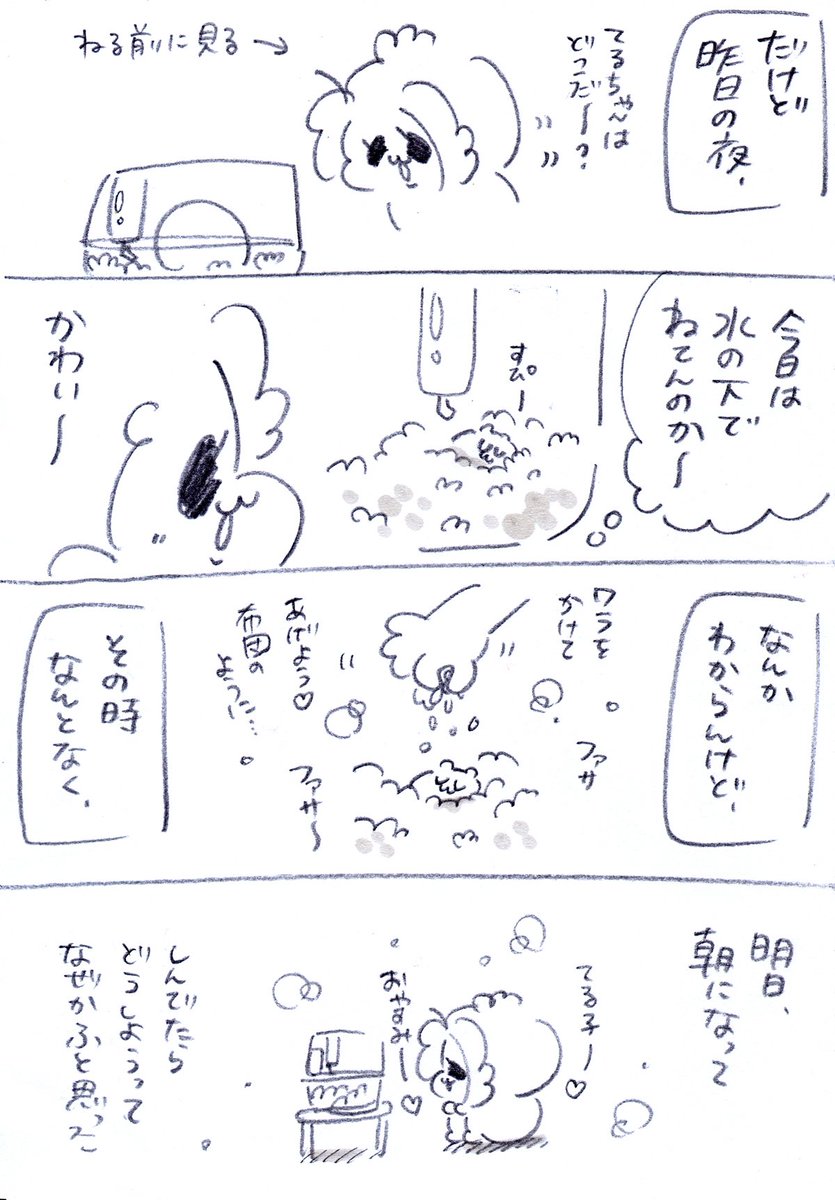 だけど
昨日の夜、
てるちゃんは
どこだ〜？
ねる前に見る→
今日は
水の下で
ねてんのか〜
すぴー
かわい〜
なんか
わからんけど、
ワラを
かけて
ファサ
あげよっ♡
布団の
ように…
ファサ〜
その時
なんとなく、
明日、
朝になって
てる子ー♡
おやすみー♡
しんでたら
どうしようって
なぜかふと思った